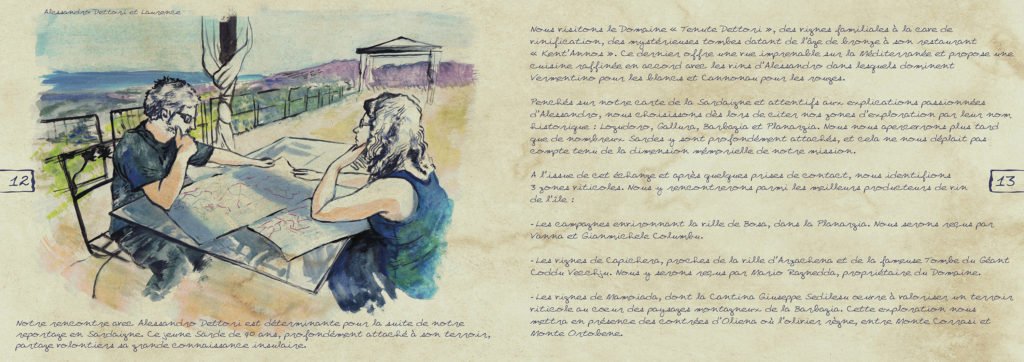 Alessandro Dettori et Laurence
12
Notre rencontre avec Alessandro Dettori est déterminante pour la suite de notre
reportage en Sardaigne. Ce jeune Sarde de 40 ans, profondément attaché à son terroir,
partage volontiers sa grande connaissance insulaire.
Nous visitons le Domaine « Tenute Dettori », des vignes familiales à la cave de
vinification, des mystérieuses tombes datant de l'âge de bronze à son restaurant
« Kent'Annos ». Ce dernier offre une vue imprenable sur la Méditerranée et propose une
cuisine raffinée en accord avec les vins d'Alessandro dans lesquels dominent
Vermentino pour les blancs et Cannonau pour les rouges.
Penchés sur notre carte de la Sardaigne et attentifs aux explications passionnées
d'Alessandro, nous choisissons dès lors de citer nos zones d'exploration par leur nom
historique : Logudoro, Gallura, Barbagia et Planargia. Nous nous apercevrons plus tard
que de nombreux Sardes y sont profondément attachés, et cela ne nous déplait pas
compte tenu de la dimension mémorielle de notre mission.
A l'issue de cet échange et après quelques prises de contact, nous identifions
3 zones viticoles. Nous y rencontrerons parmi les meilleurs producteurs de vin
de l'île :
-Les campagnes environnant la ville de Bosa, dans la Planargia. Nous serons reçus par
Vanna et Gianmichele Columbu.
-Les vignes de Capichera, proches de la ville d'Arzachena et de la fameuse Tombe du Géant
Coddu Vecchju. Nous y serons reçus par Mario Ragnedda, propriétaire du Domaine.
-Les vignes de Mamoiada, dont la Cantina Giuseppe Sedilesu oeuvre à valoriser un terroir
viticole au coeur des paysages montagneux de la Barbagia. Cette exploration nous
mettra en présence des contrées d'Oliena où l'olivier règne, entre Monte Corrasi et
Monte Ortobene.
13